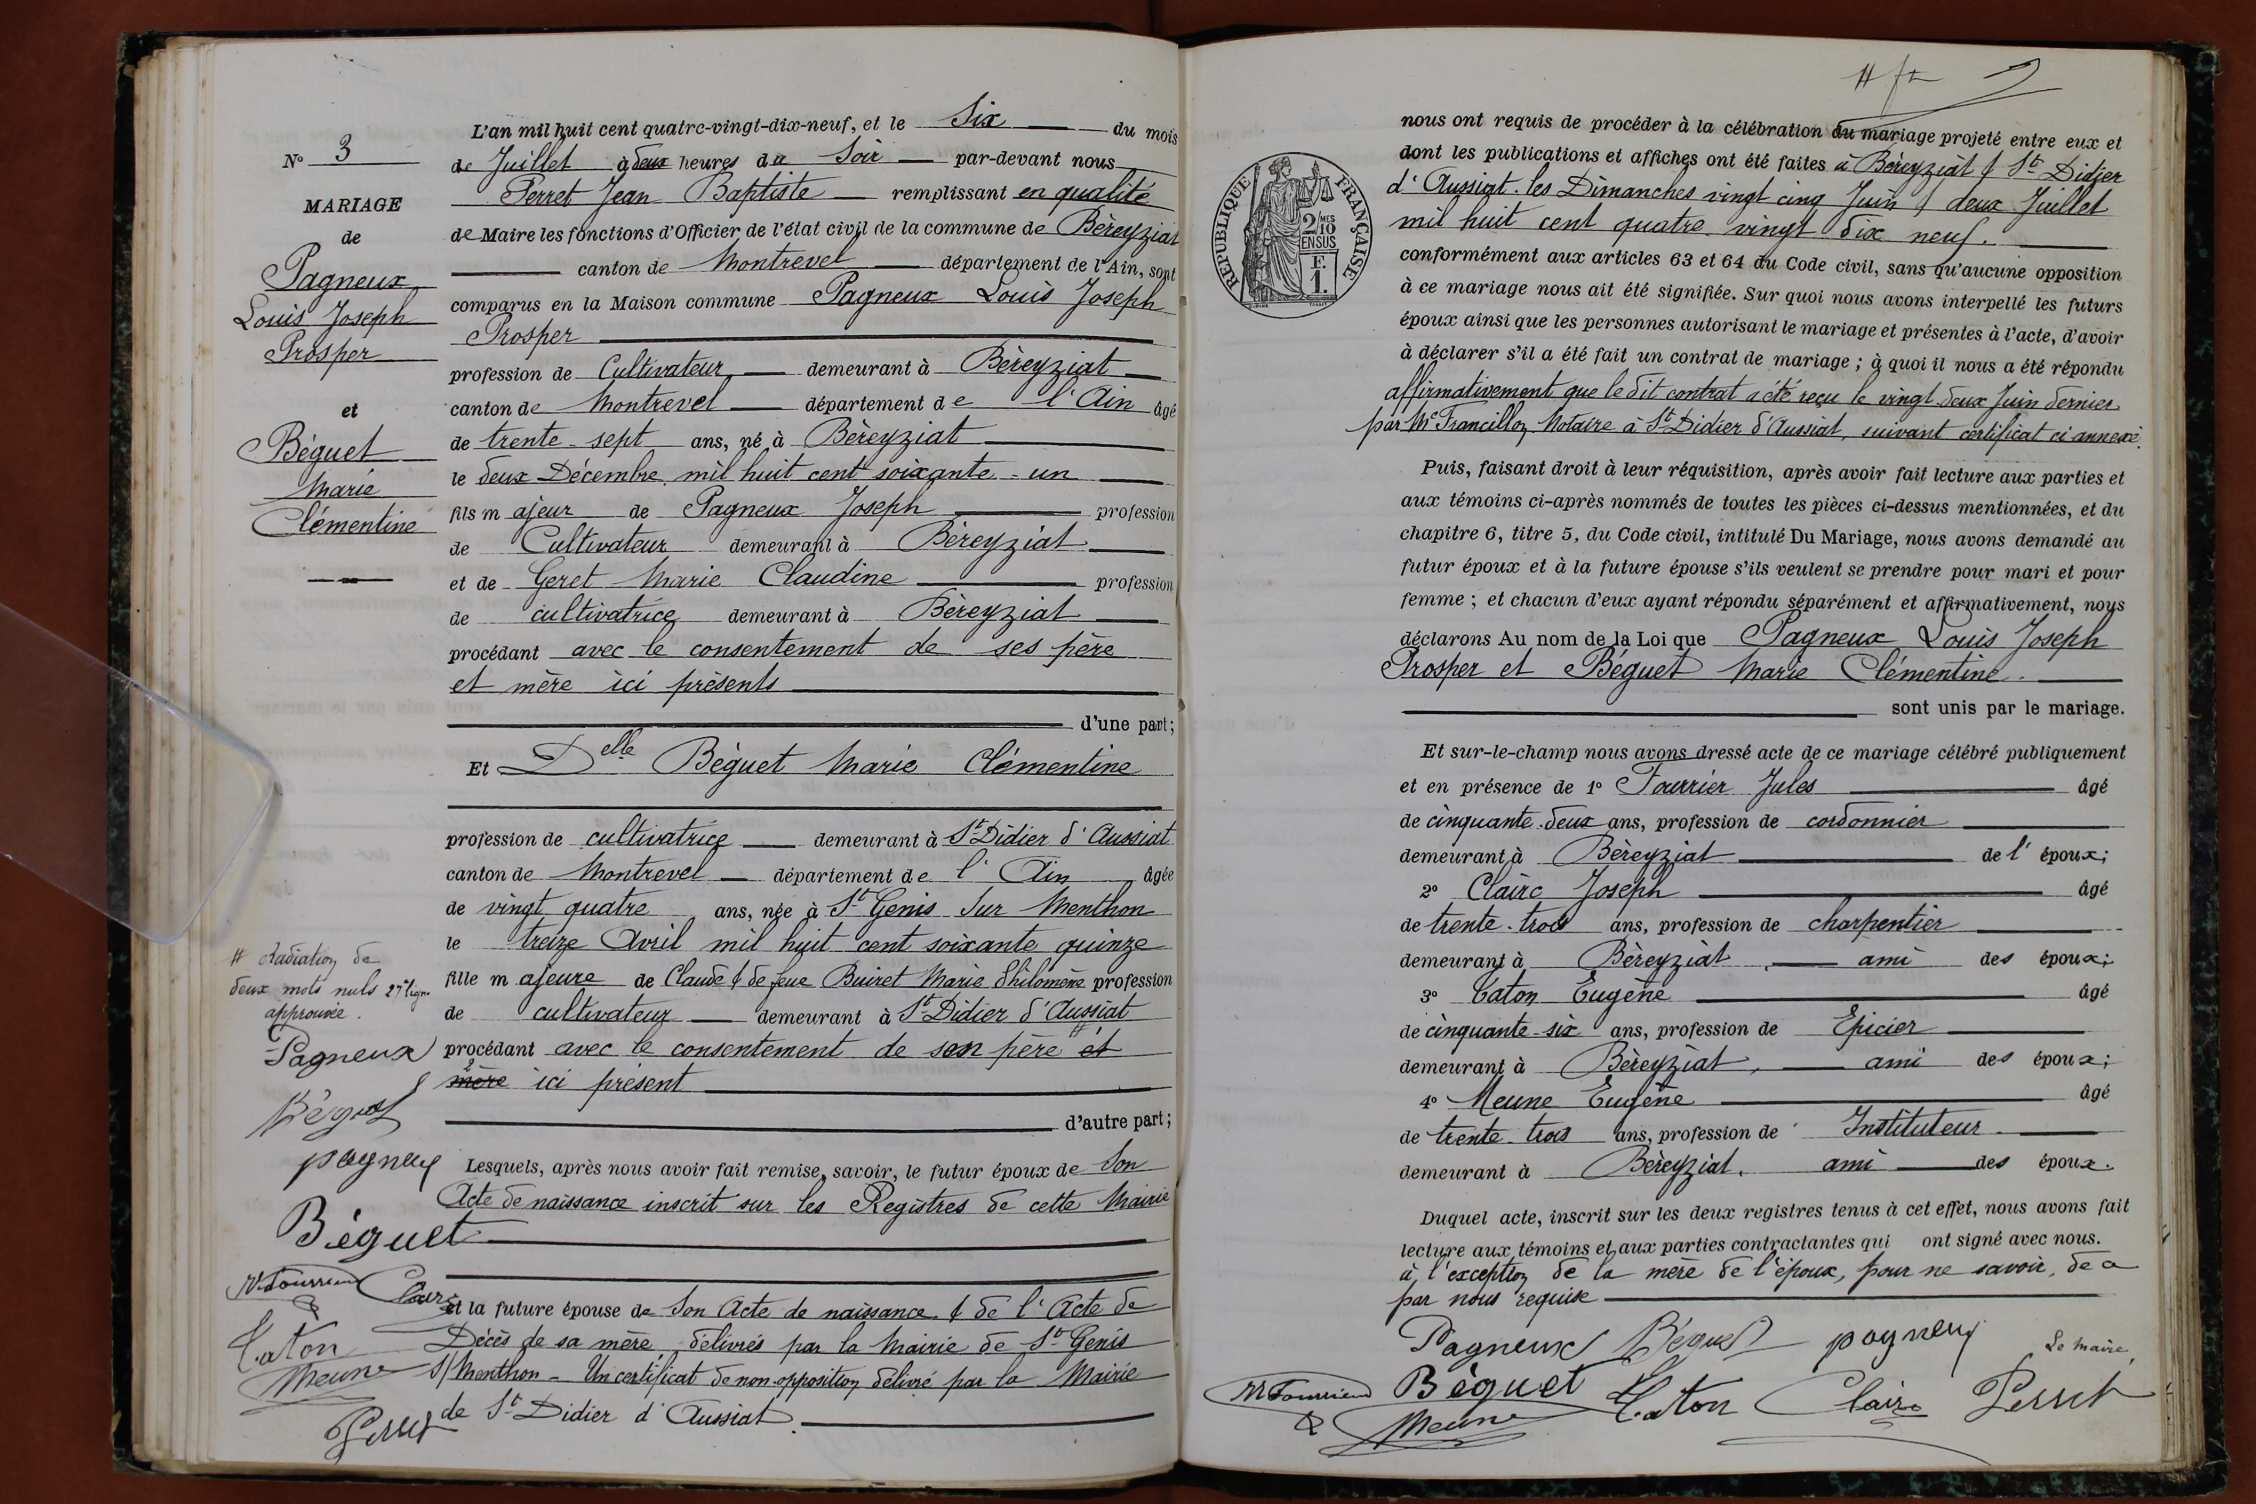 N° 3
MARIAGE
de
Pagneux
Louis Joseph
Prosper
et
Béguet
Marie
Clémentine
L'an mil huit cent quatre-vingt-dix-neuf, et le Six du mois
de Juillet à deux heures du Soir par-devant nous
Perret Jean Baptiste remplissant en qualité
de Maire les fonctions d'Officier de l'état civil de la commune de Bèreyziat
canton de Montrevel département de l'Ain, sont
comparus en la Maison commune Pagneux Louis Joseph
Prosper
profession de Cultivateur demeurant à Bèreyziat
canton de Montrevel département de l'Ain âgé
de trente-sept ans, né à Bèreyziat
le deux Décembre mil huit cent soixante-un
fils majeur de Pagneux Joseph profession
de Cultivateur demeurant à Bèreyziat
et de Geret Marie Claudine profession
de cultivatrice demeurant à Bèreyziat
procédant avec le consentement de ses père
et mère ici présents
d'une part;
Et Delle Béguet Marie Clémentine
profession de cultivatrice demeurant à St Didier d'Aussiat
canton de Montrevel département de l'Ain âgée
de vingt quatre ans, née à St Genis Sur Menthon
le treize Avril mil huit cent soixante quinze
fille majeure de Claude & de feue Buiret Marie Philomène profession
de cultivateur demeurant à St Didier d'Aussiat
procédant avec le consentement de son père # et
mère ici présent
d'autre part;
# Radiation de
deux mots nuls 27e lign.
approuvée.
Pagneux
Béguet
pagneux
Béguet
M Fourrier Claire
Caton
Meune
Perret
Lesquels, après nous avoir fait remise, savoir, le futur époux de Son
Acte de naissance inscrit sur les Registres de cette Mairie
et la future épouse de Son Acte de naissance & de l'Acte de
Décès de sa mère, délivrés par la Mairie de St Genis
s/ Menthon - Un certificat de non-opposition délivré par la Mairie
de St Didier d'Aussiat.
RÉPUBLIQUE FRANÇAISE
2/10 MES
EN SUS
F.
1.
nous ont requis de procéder à la célébration du mariage projeté entre eux et
dont les publications et affiches ont été faites à Bèreyziat & St Didier
d'Aussiat. les Dimanches vingt cinq Juin & deux Juillet
mil huit cent quatre-vingt dix neuf.
conformément aux articles 63 et 64 du Code civil, sans qu'aucune opposition
à ce mariage nous ait été signifiée. Sur quoi nous avons interpellé les futurs
époux ainsi que les personnes autorisant le mariage et présentes à l'acte, d'avoir
à déclarer s'il a été fait un contrat de mariage ; à quoi il nous a été répondu
affirmativement que le dit contrat a été reçu le vingt-deux Juin dernier
par Me Francillon Notaire à St Didier d'Aussiat, suivant certificat ci annexé.
Puis, faisant droit à leur réquisition, après avoir fait lecture aux parties et
aux témoins ci-après nommés de toutes les pièces ci-dessus mentionnées, et du
chapitre 6, titre 5, du Code civil, intitulé Du Mariage, nous avons demandé au
futur époux et à la future épouse s'ils veulent se prendre pour mari et pour
femme ; et chacun d'eux ayant répondu séparément et affirmativement, nous
déclarons Au nom de la Loi que Pagneux Louis Joseph
Prosper et Béguet Marie Clémentine.
sont unis par le mariage.
Et sur-le-champ nous avons dressé acte de ce mariage célébré publiquement
et en présence de 1° Fourrier Jules âgé
de cinquante-deux ans, profession de cordonnier
demeurant à Bèreyziat de l'époux;
2° Claire Joseph âgé
de trente-trois ans, profession de charpentier
demeurant à Bèreyziat, ami des époux;
3° Caton Eugène âgé
de cinquante-six ans, profession de Epicier
demeurant à Bèreyziat, ami des époux;
4° Meune Eugène âgé
de trente-trois ans, profession de Instituteur
demeurant à Bèreyziat, ami des époux.
Duquel acte, inscrit sur les deux registres tenus à cet effet, nous avons fait
lecture aux témoins et aux parties contractantes qui ont signé avec nous.
à l'exception de la mère de l'époux, pour ne savoir, de ce
par nous requise
Pagneux Béguet pagneux Le Maire,
M Fourrier Béguet Caton Claire Perret
Meune